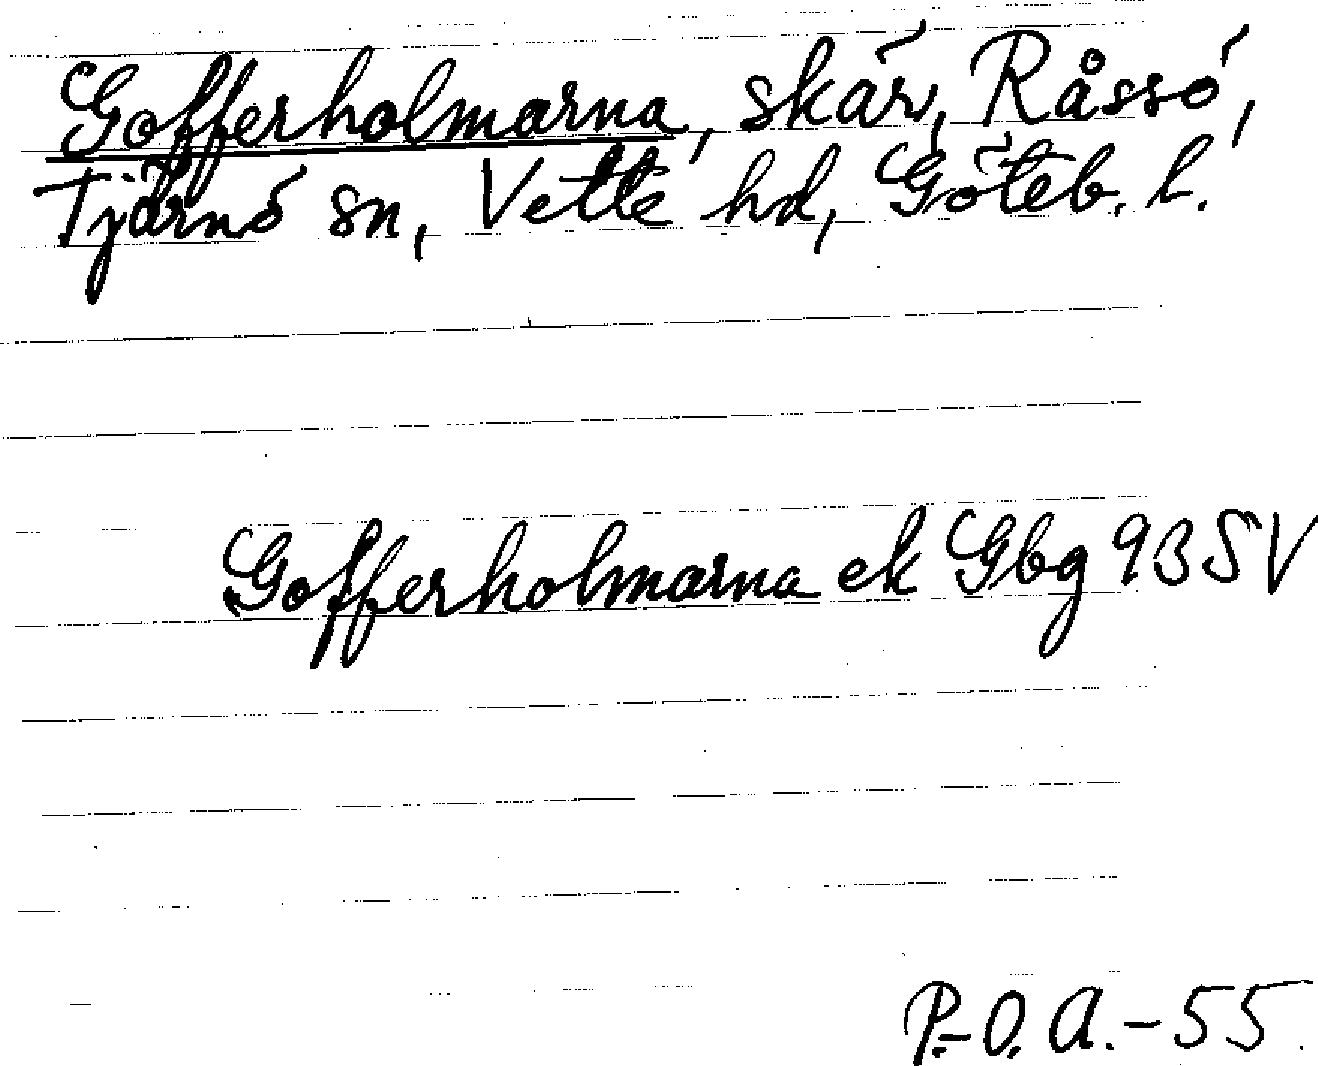 Gofferholmarna, skär, Råssö,
Tjärnö sn, Vette hd, Göteb. l.
Gofferholmarna ek Gbg 93 SV
P.-O. A. - 55.